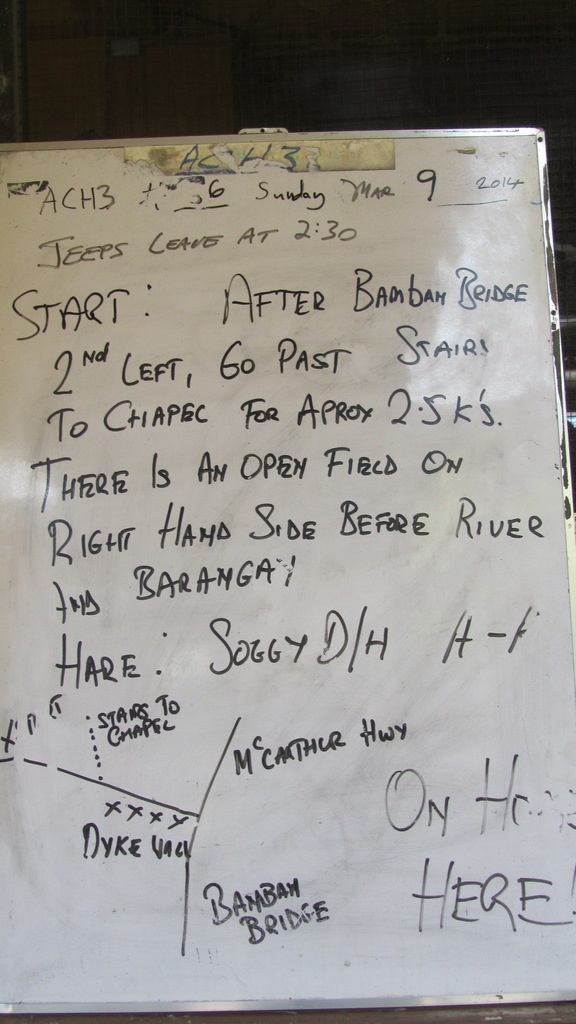 ACH3
ACH3 6 Sunday MAR 9 2014
JEEPS LEAVE AT 2:30
START: AFTER BAMBAM BRIDGE
2Nd LEFT, GO PAST STAIRS
TO CHAPEL FOR APROX 2.5 K'S.
THERE IS AN OPEN FIELD ON
RIGHT HAND SIDE BEFORE RIVER
AND BARANGAY
HARE: SOGGY D/H A-A
STAIRS TO
CHAPEL
McCARTHUR HWY
XXXX
DYKE WALL
ON
HERE!
BAMBAM
BRIDGE